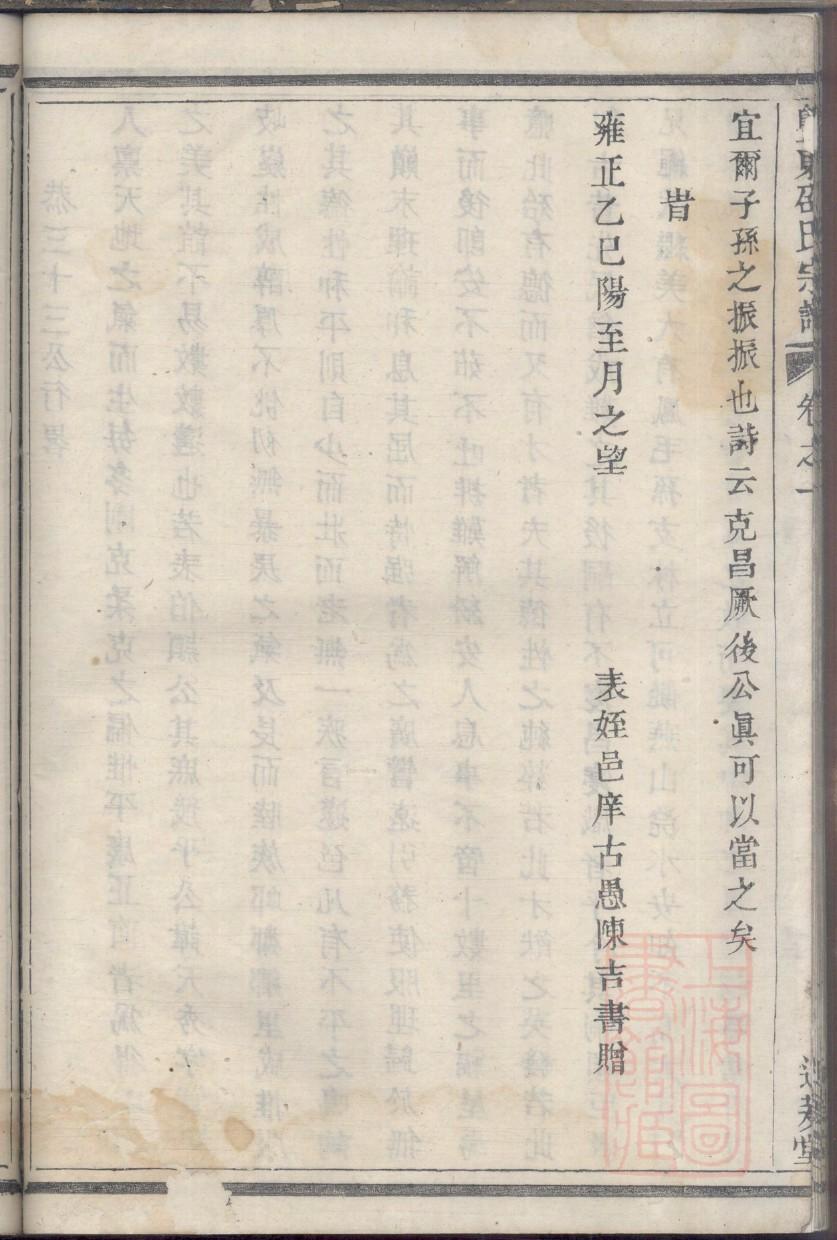 東邵氏宗譜 卷之一
宜爾子孫之振振也詩云克昌厥後公眞可以當之矣
旹
雍正乙巳陽至月之望 表姪邑庠古愚陳吉書贈
上海圖書館藏